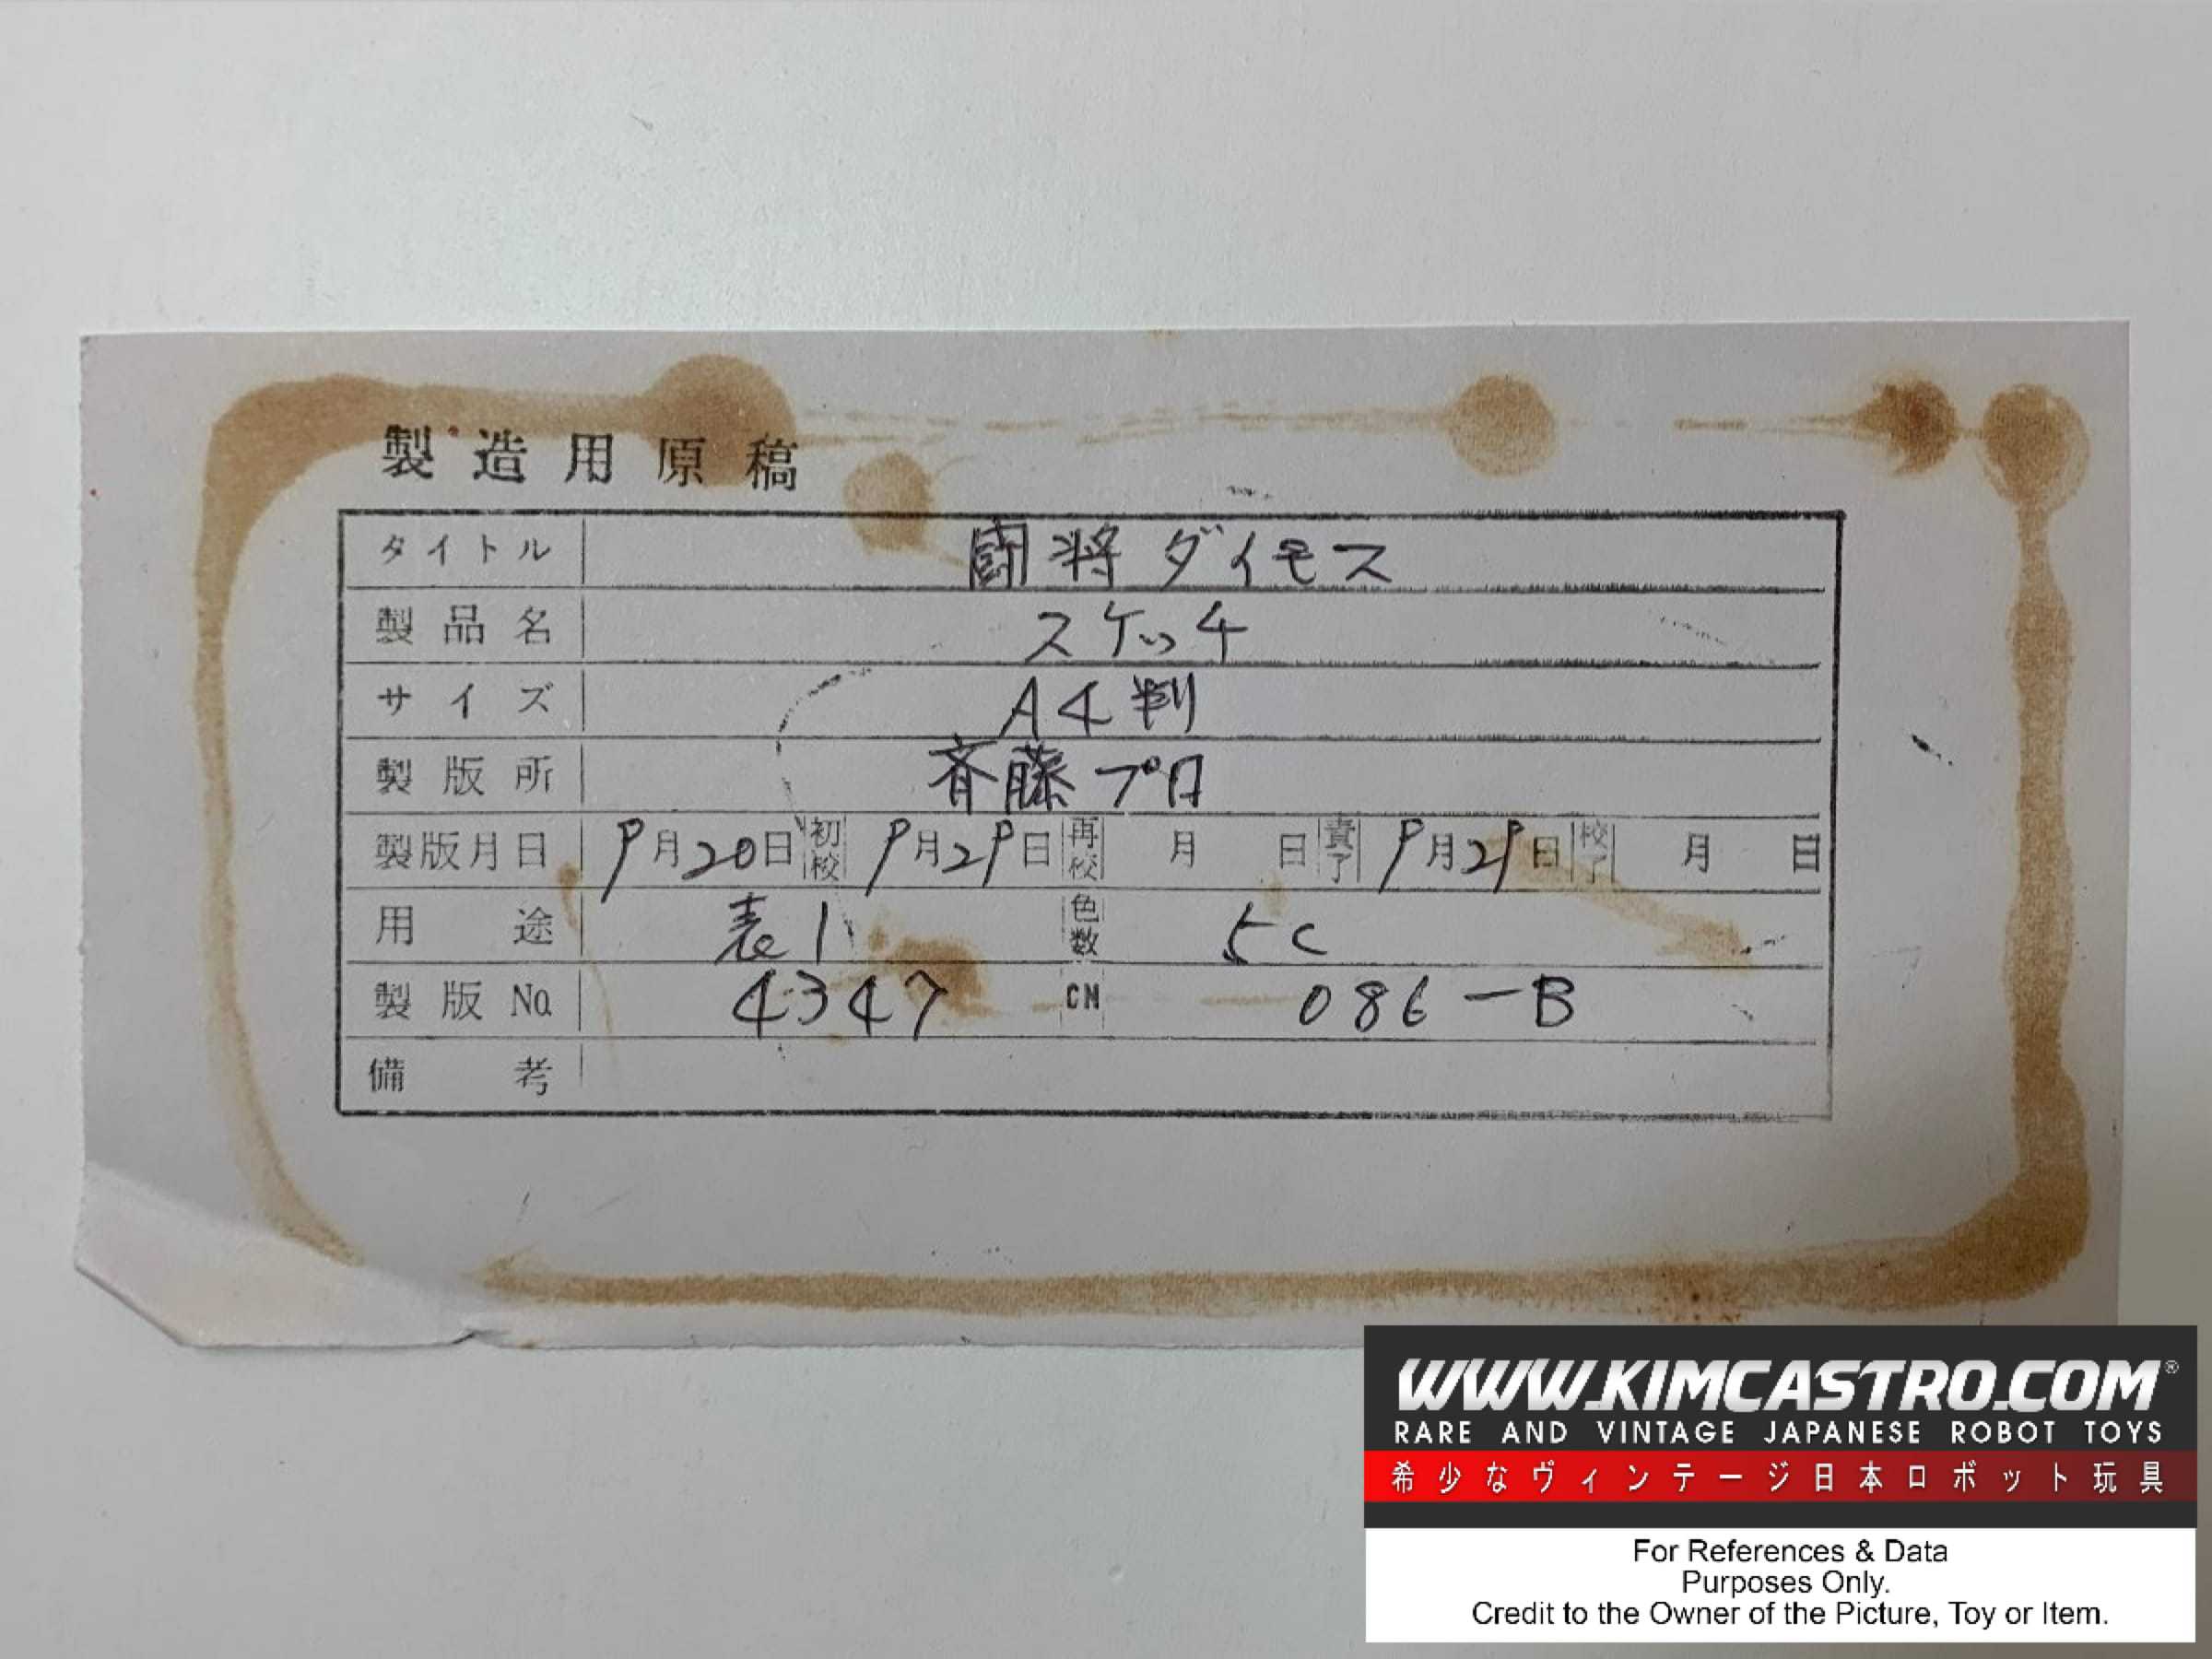 製造用原稿
タイトル 闘将ダイモス
製品名 スケッチ
サイズ A4判
製版所 斉藤プロ
製版月日 9月20日 初校 9月29日 再校 月 日 責了 9月29日 校了 月 日
用途 表1 色数 5C
製版No. 4347 CN 086-B
備考
WWW.KIMCASTRO.COM®
RARE AND VINTAGE JAPANESE ROBOT TOYS
希少なヴィンテージ日本ロボット玩具
For References & Data
Purposes Only.
Credit to the Owner of the Picture, Toy or Item.